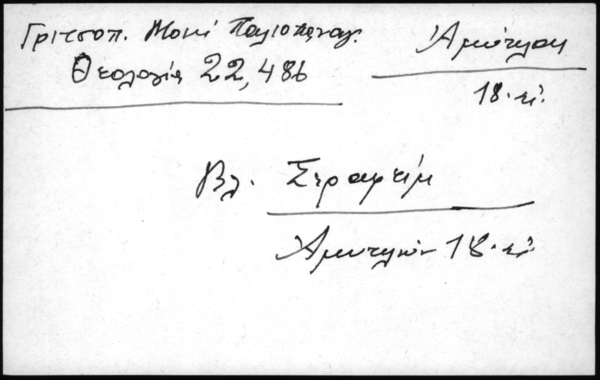 Γριτσοπ. Μονή Παλιοπαναγ.
Θεολογία 22, 486
Ἀμύκλαι
18. αἰ.
Βλ. Σεραφείμ
Ἀμυκλῶν 18. αἰ.